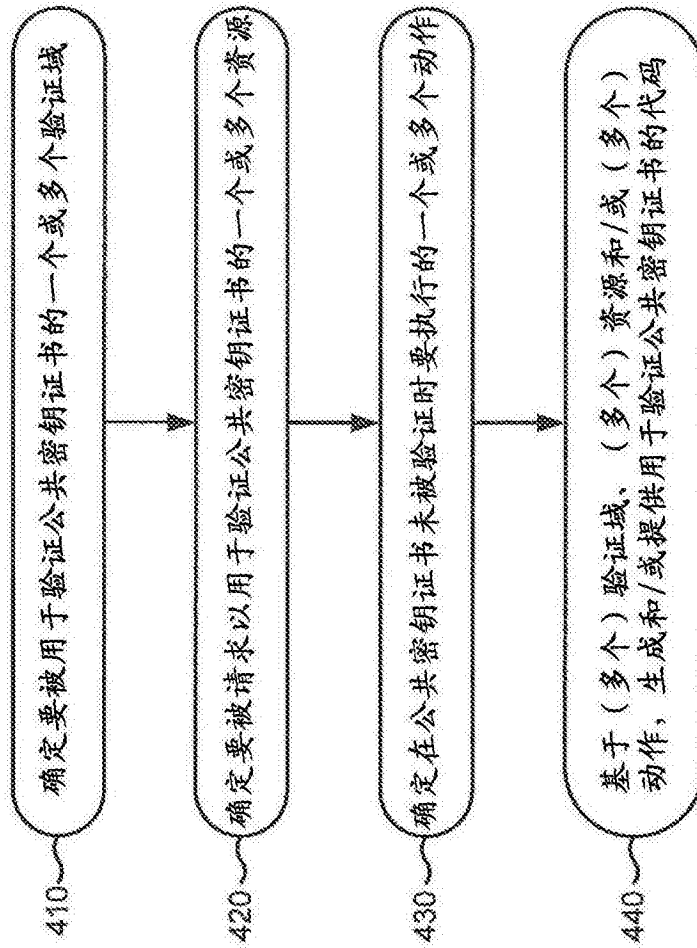 410
确定要被用于验证公共密钥证书的一个或多个验证域
420
确定要被请求以用于验证公共密钥证书的一个或多个资源
430
确定在公共密钥证书未被验证时要执行的一个或多个动作
440
基于（多个）验证域、（多个）资源和/或（多个）
动作，生成和/或提供用于验证公共密钥证书的代码